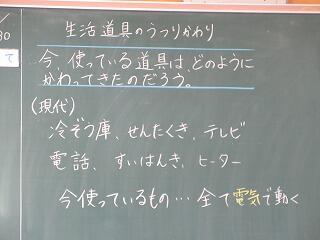 30
て
生活道具のうつりかわり
今、使っている道具は、どのように
かわってきたのだろう。
(現代)
冷ぞう庫、せんたくき、テレビ
電話、すいはんき、ヒーター
今使っているもの…全て電気で動く